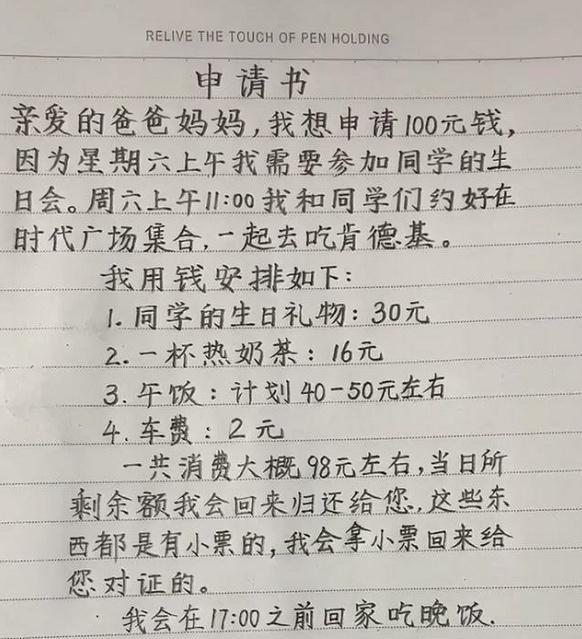 RELIVE THE TOUCH OF PEN HOLDING
申请书
亲爱的爸爸妈妈,我想申请100元钱,
因为星期六上午我需要参加同学的生
日会。周六上午11:00我和同学们约好在
时代广场集合,一起去吃肯德基。
我用钱安排如下:
1.同学的生日礼物:30元
2.一杯热奶茶:16元
3.午饭:计划40-50元左右
4.车费:2元
一共消费大概98元左右,当日所
剩余额我会回来归还给您,这些东
西都是有小票的,我会拿小票回来给
您对证的。
我会在17:00之前回家吃晚饭.